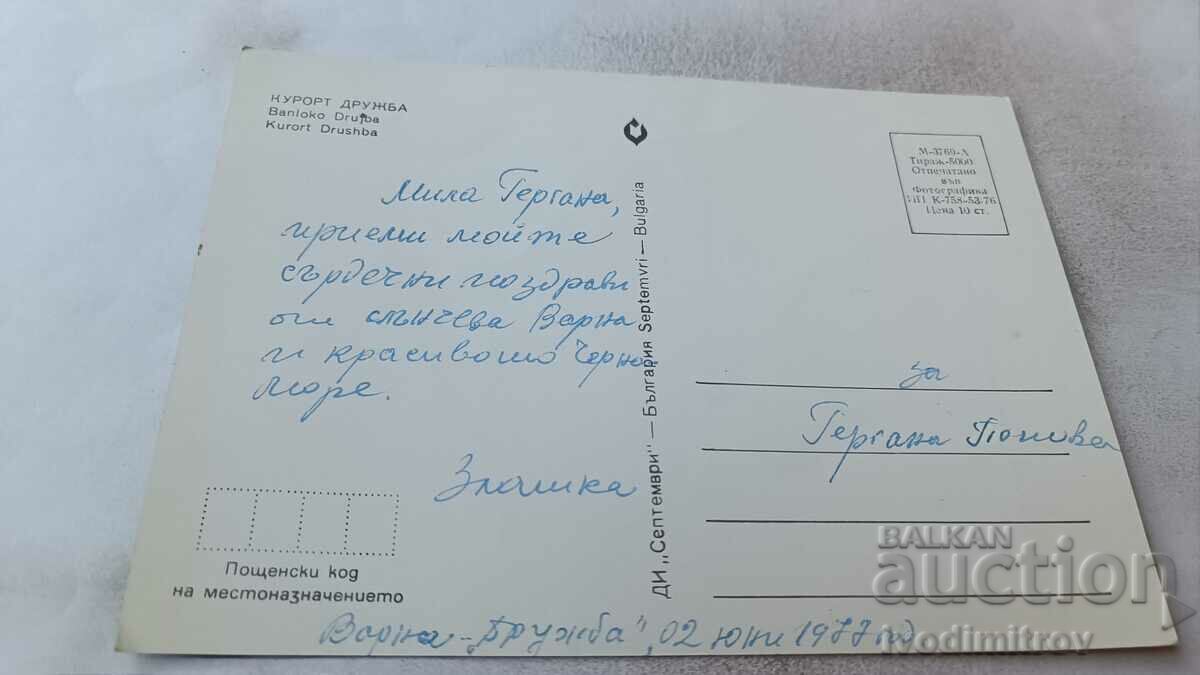 КУРОРТ ДРУЖБА
Banloko Drujba
Kurort Drushba
Мила Гергана,
приеми мойте
сърдечни поздрави
от слънчева Варна
и красивото Черно
море.
Златка
Пощенски код
на местоназначението
ДИ „Септември" — България Septemvri — Bulgaria
М-3769-А
Тираж-5000
Отпечатано
във
Фотографика
ИП К-758-53-76
Цена 10 ст.
за
Гергана Попова
Варна - „Дружба", 02 юни 1977 год
BALKAN
auction
Modimitrov